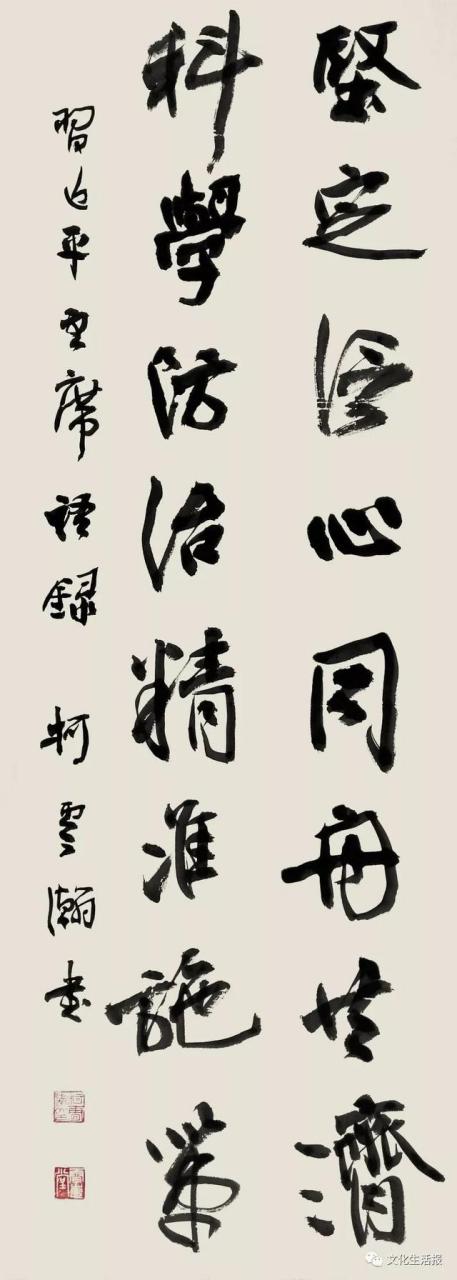 堅定信心同舟共濟
科學防治精准施策
習近平主席語録 柯雲瀚書
文化生活报